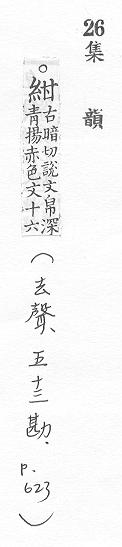 26集韻
。紺古暗切說文帛深青揚赤色文十六
(去聲、五十三勘、p.623)